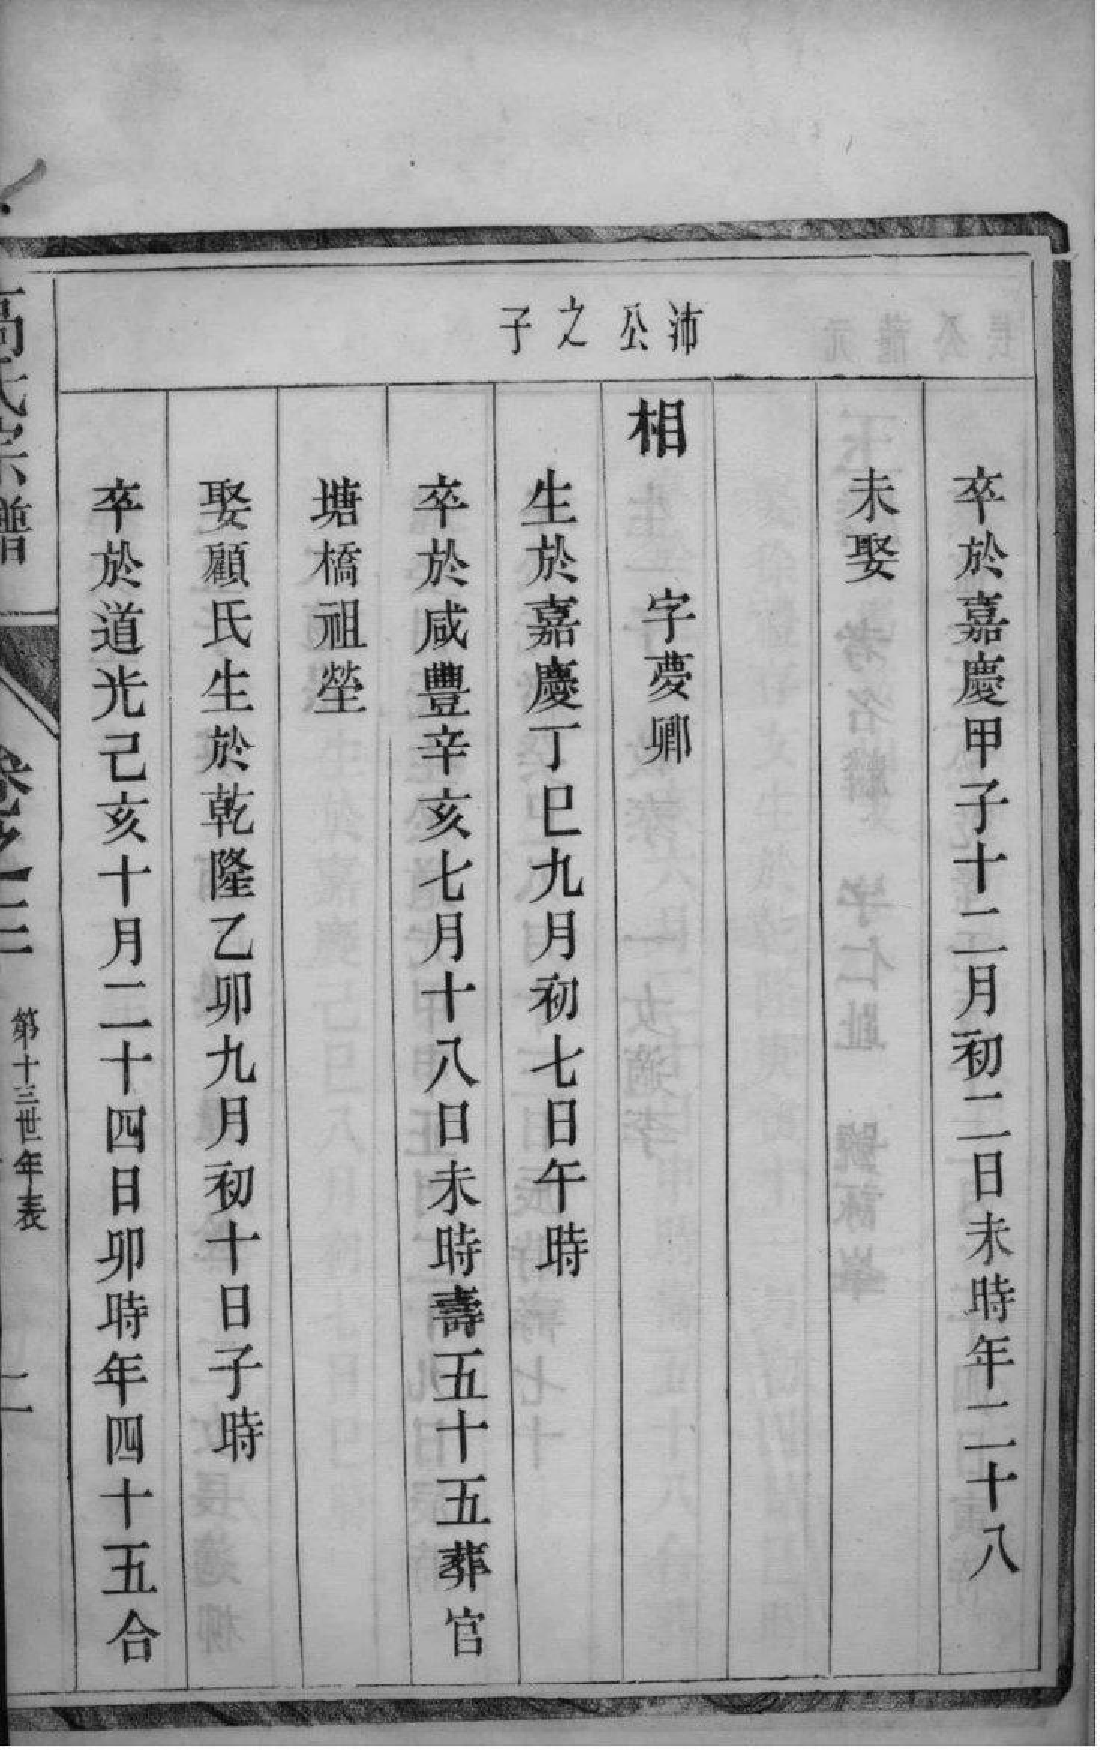 卒於嘉慶甲子十二月初二日未時年二十八
未娶
沛公之子
相　字夢卿
生於嘉慶丁巳九月初七日午時
卒於咸豐辛亥七月十八日未時壽五十五葬官
塘橋祖塋
娶顧氏生於乾隆乙卯九月初十日子時
卒於道光己亥十月二十四日卯時年四十五合
高氏宗譜
卷之二
第十三世年表